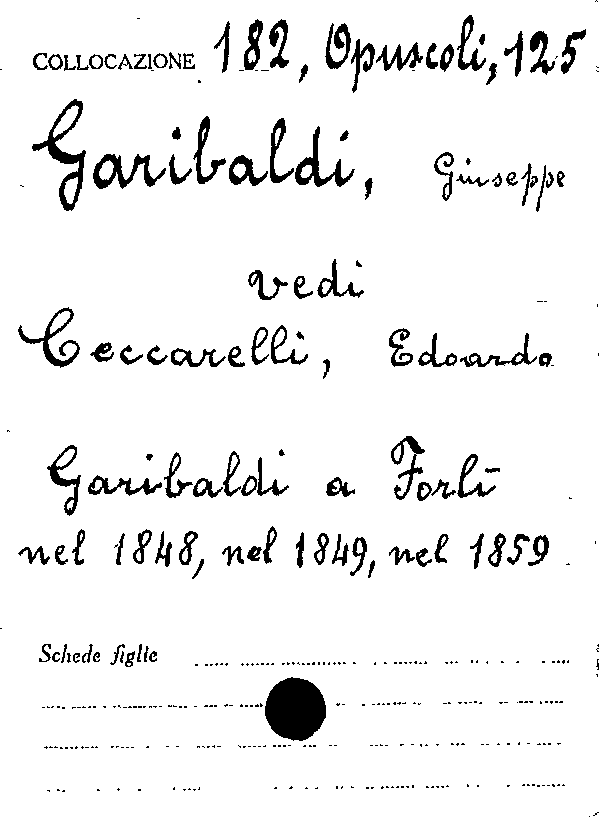 COLLOCAZIONE 182, Opuscoli, 125
Garibaldi, Giuseppe
vedi
Ceccarelli, Edoardo
Garibaldi a Forlì
nel 1848, nel 1849, nel 1859
Schede figlie